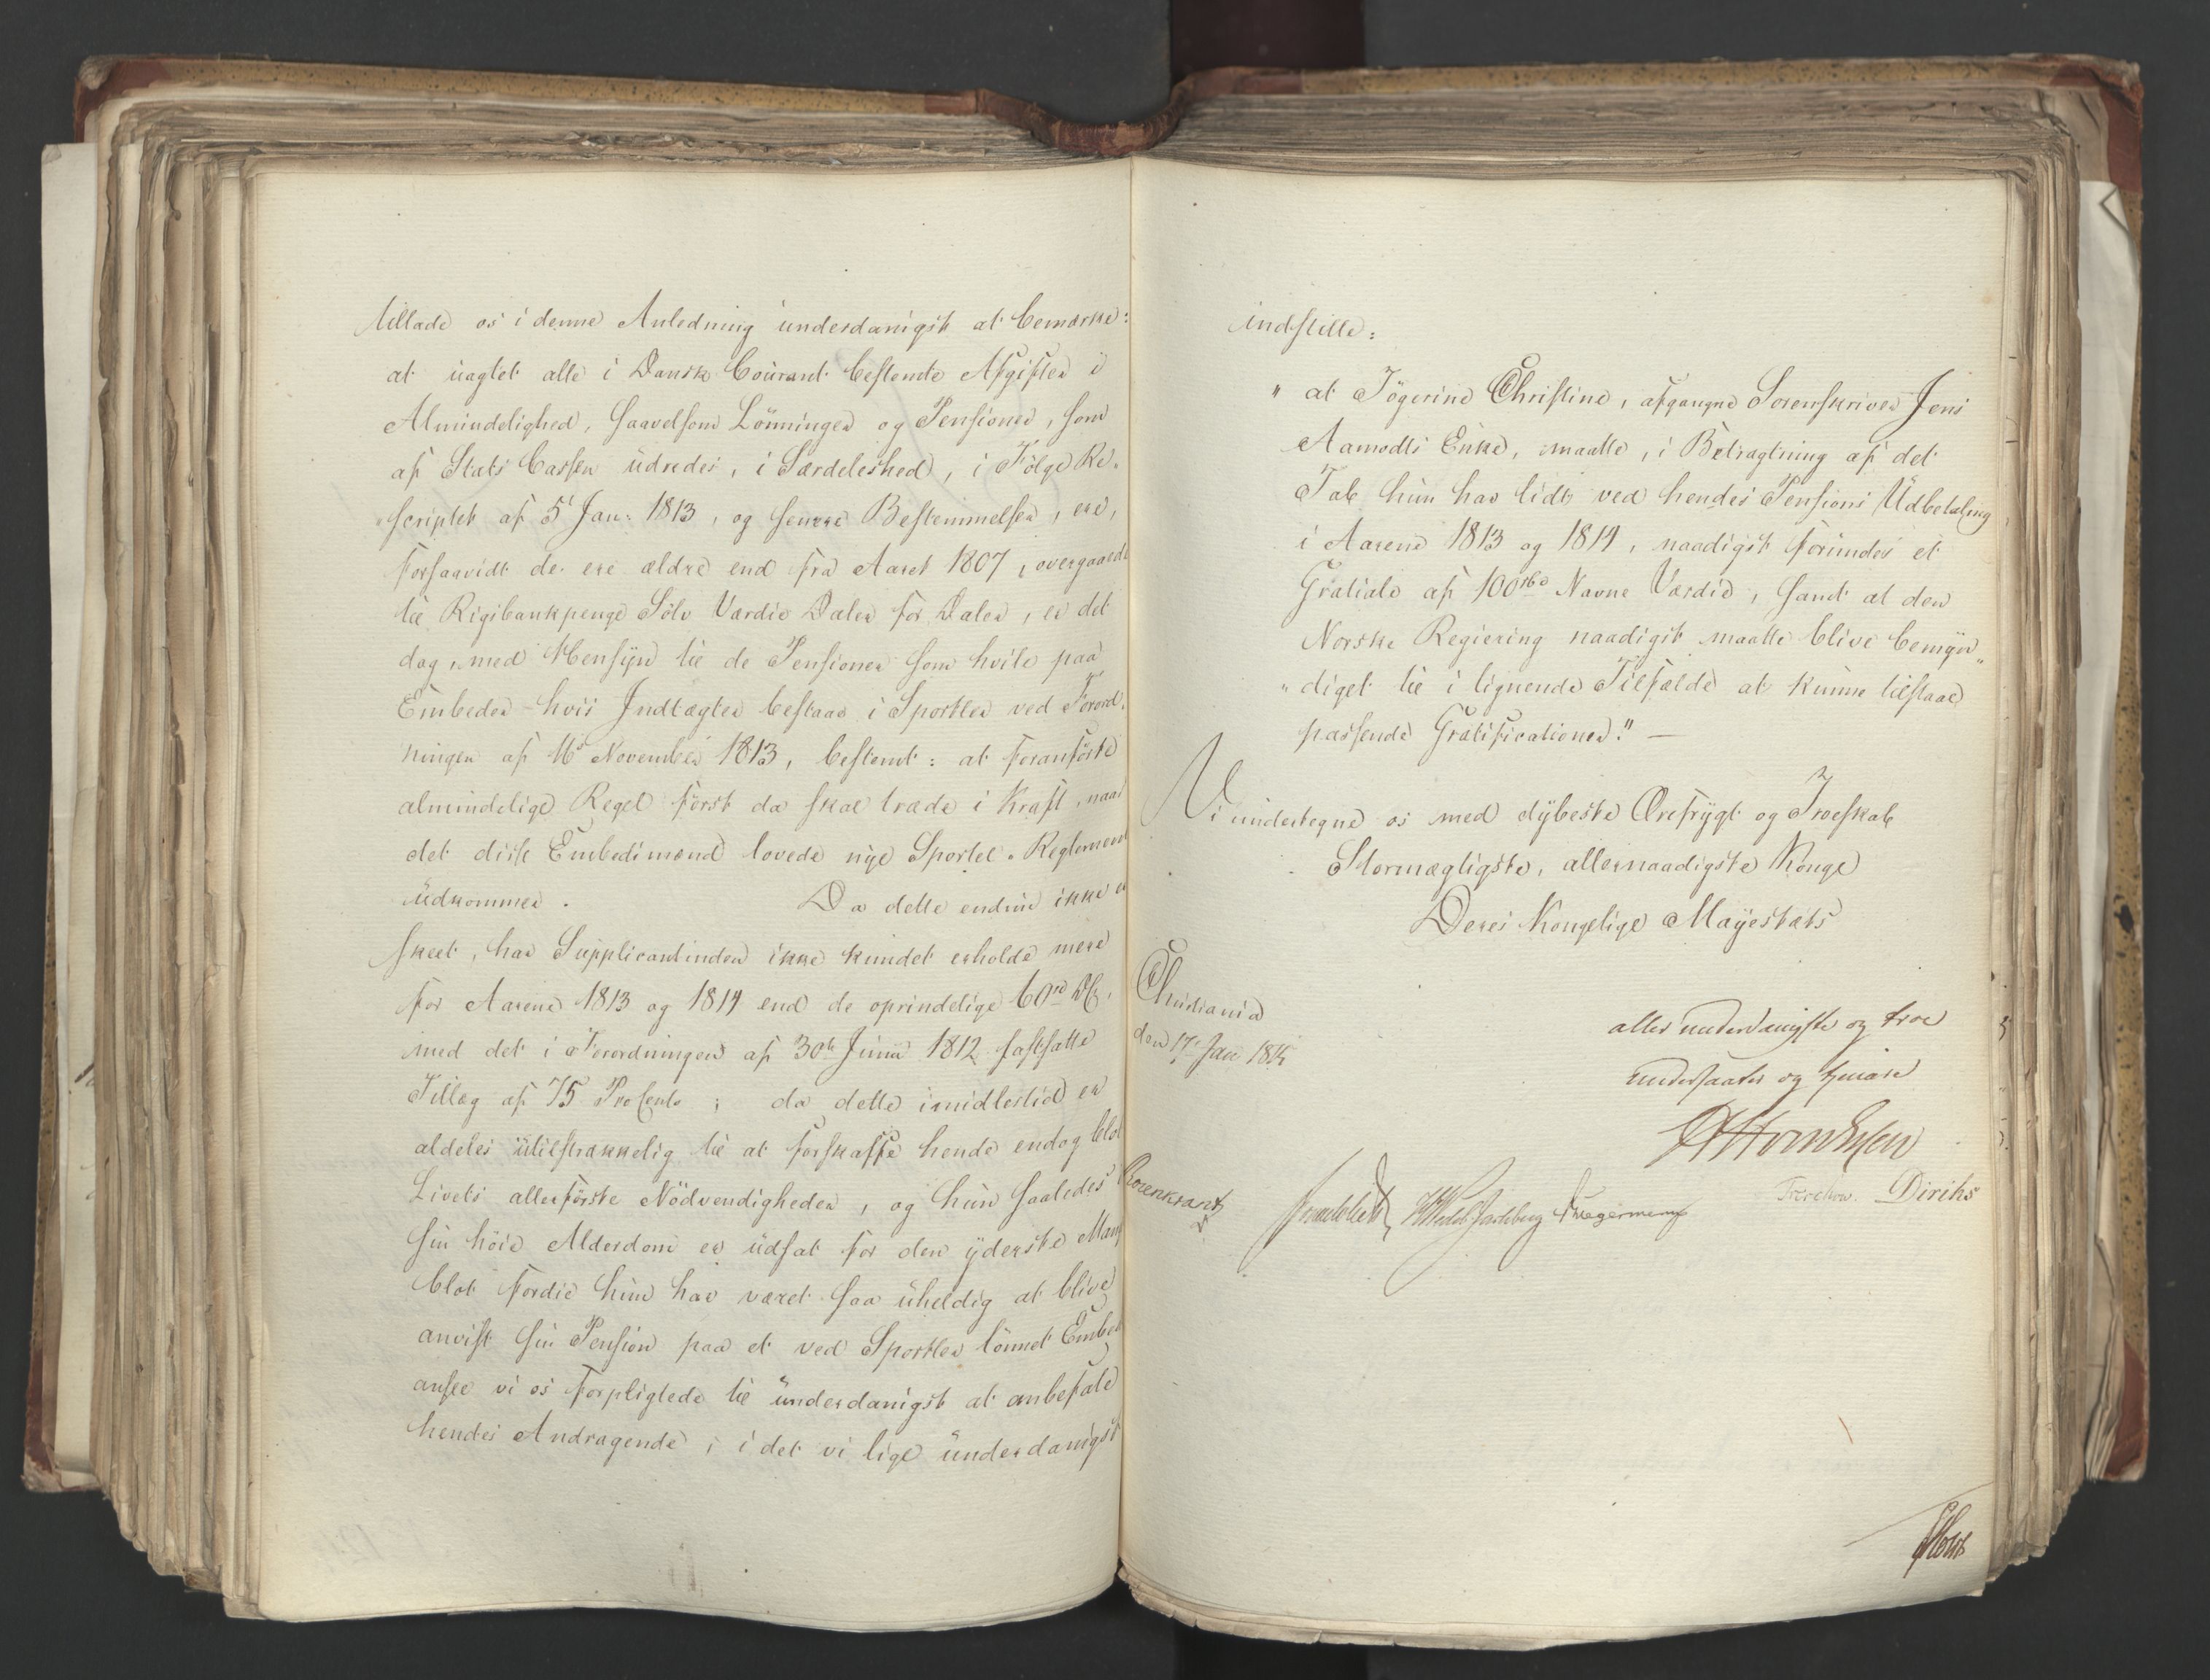 tillade os i denne Anledning underdanigst at bemærke:
at uagtet alle i Dansk Courant bestemte Afgifter i
Almindelighed, saavelsom Lönninger og Pensioner, som
af Stats Cassen udredes, i Særdeleshed, i Følge Re-
scriptet af 5t Jan: 1813, og senere Bestemmelser, ere,
forsaavidt de ere ældre end fra Aaret 1807, overgaaede
til Rigsbankpenge Sölv Værdie Daler for Daler, er det
dog, med Hensyn til de Pensioner som hvile paa
Embeder hvis Indtægter bestaae i Sportler ved Forord-
ningen af 16 November 1813, bestemt: at foranförte
almindelige Regel först da skal træde i Kraft, naar
det disse Embedsmænd lovede nye Sportel-Reglement
udkommer. Da dette endnu ikke er
skeet, har Supplicantinden ikke kundet erholde mere
for Aarene 1813 og 1814 end de oprindelige 60rd DC,
med det i Forordningen af 30te Junii 1812 fastsatte
Tillæg af 75 ProCento; da dette imidlertid er
aldeles utilstrækkelig til at forskaffe hende endog blot
Livets allerförste Nödvendigheder, og hun saaledes i
sin höie Alderdom er udsat for den yderste Mang
blot fordie hun har været saa uheldig at blive
anvist sin Pension paa et ved Sportler lönnet Embed
ansee vi os forpligtede til underdanigst at anbefale
hendes Andragende, i det vi lige underdanigst
indstille:
" at Jögerine Christine, afgangne Sorenskriver Jens
Aamodts Enke, maatte, i Betragtning af det
Tab hun har lidt ved hendes Pensions Udbetaling
i Aarene 1813 og 1814, naadigst forundes et
Gratiale af 100rbd Navne Værdie, samt at den
Norske Regiering naadigst maatte blive bemyn-
" diget til i lignende Tilfælde at kunne tilstaae
passende Gratificationer." —
Vi undertegne os med dybeste Ærefrygt og Troeskab
Stormægtigste, allernaadigste Konge
Deres Kongelige Mayestæts
Christiania
den 17 Jan 1815
allerunderdanigste og troe
undersaatter og tienere
Rosenkrantz
Sommerhielm
H Wedel Jarlsberg
Krieger
Treschow. Diriks